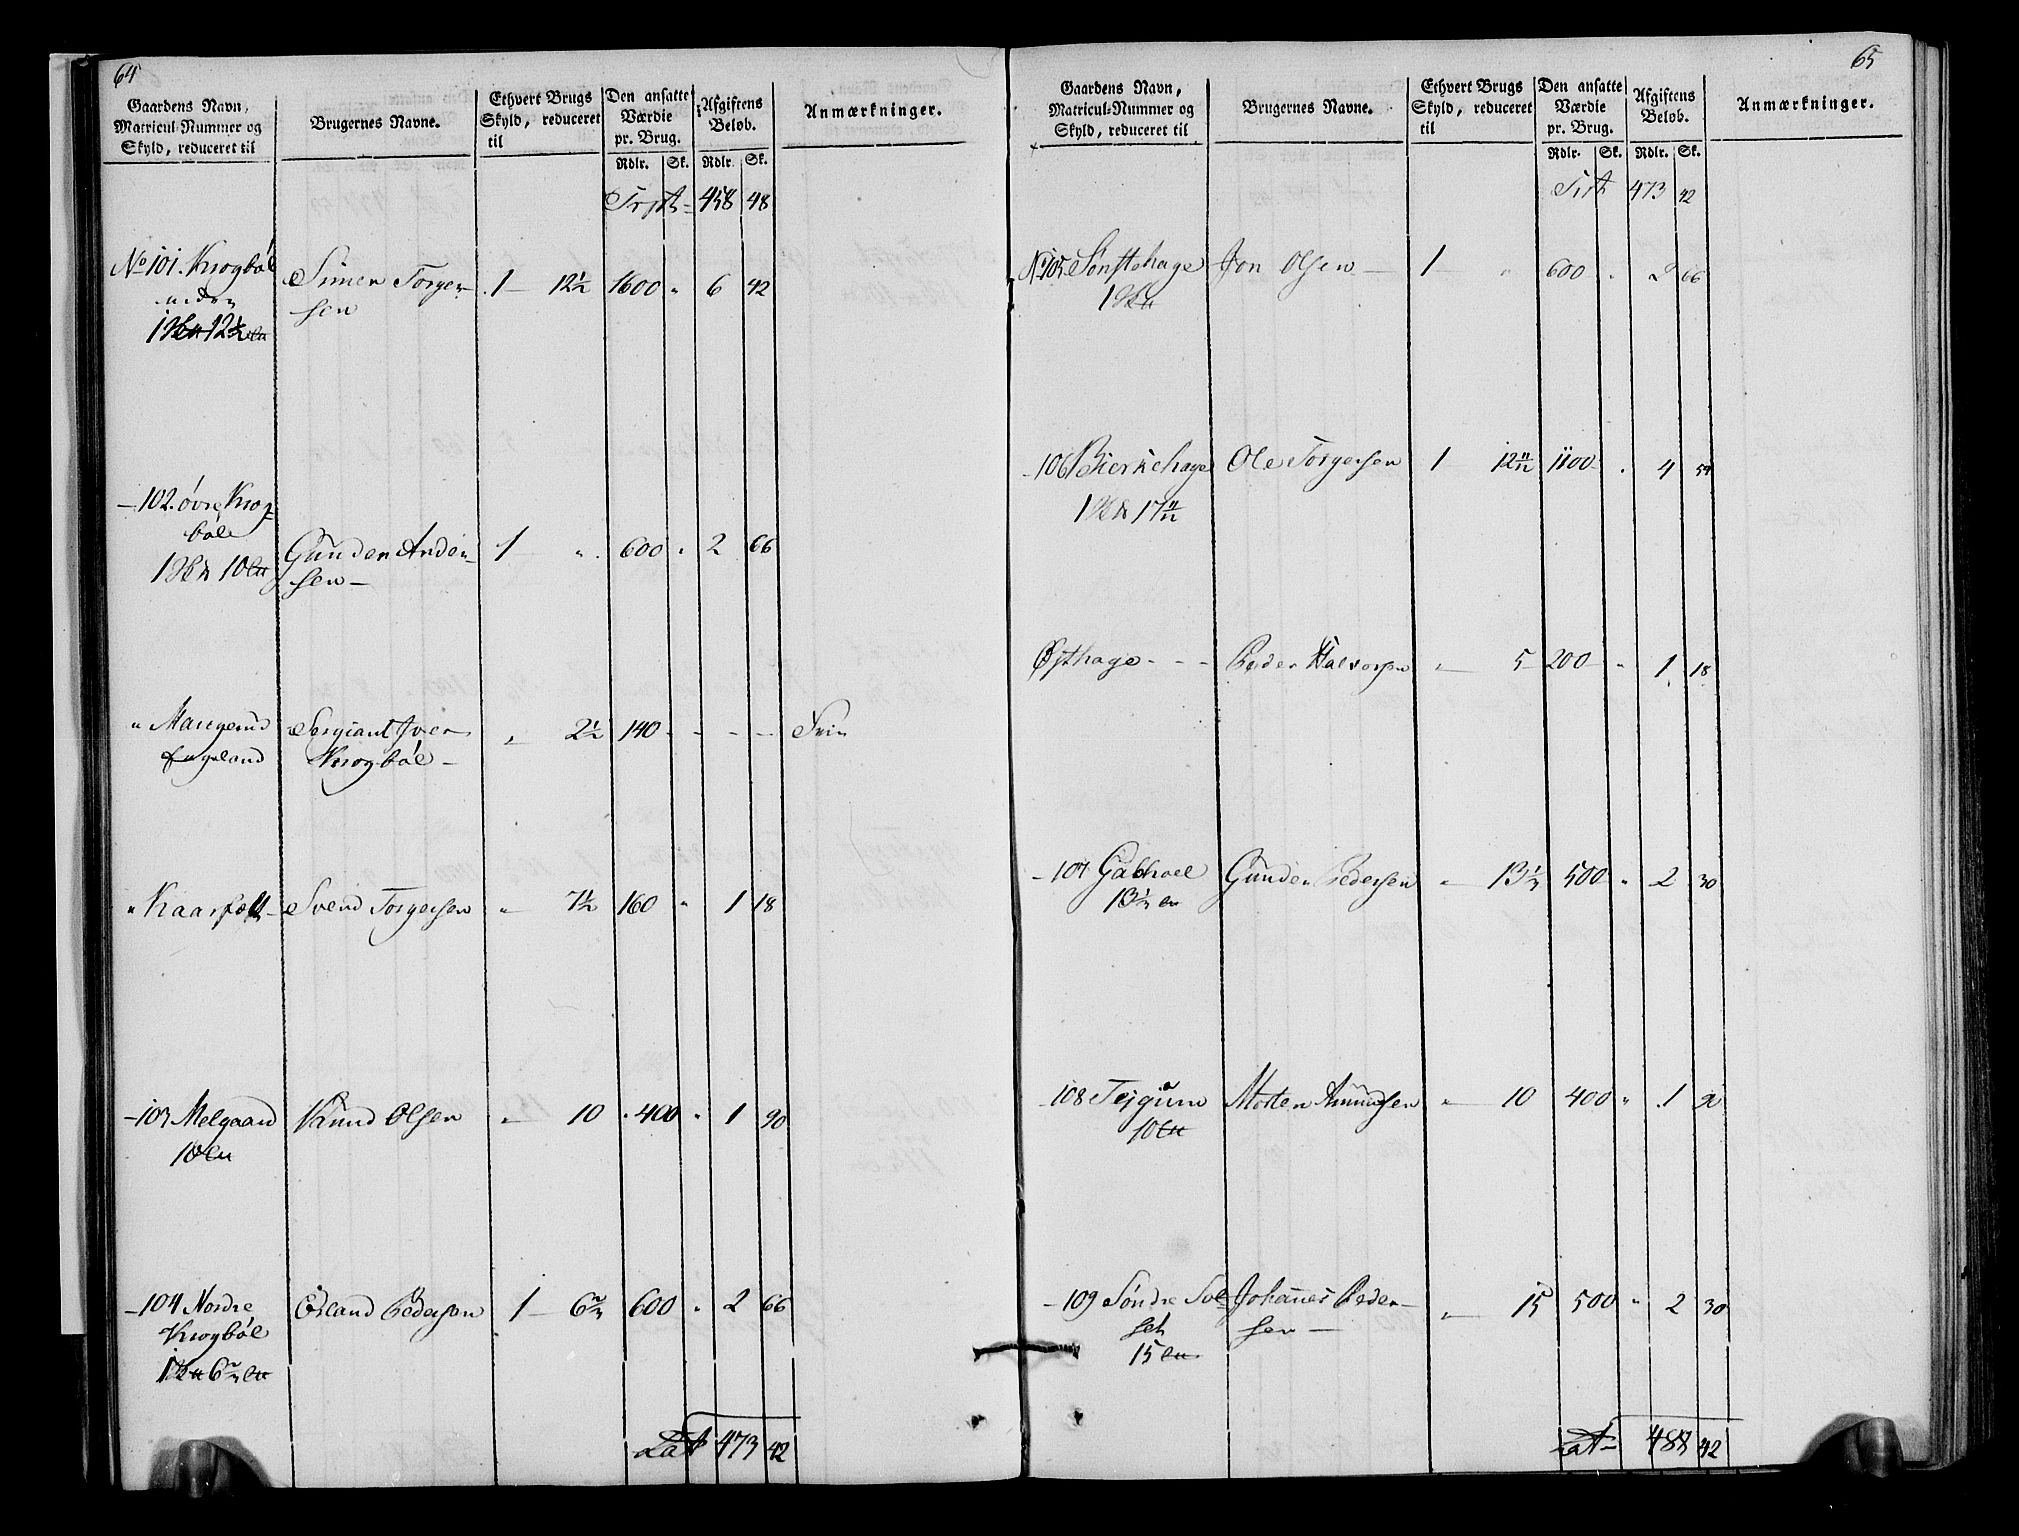 64
Gaardens Navn, Matricul-Nummer og Skyld, reduceret til
Brugernes Navne.
Ethvert Brugs Skyld, reduceret til
Den ansatte Værdie pr. Brug.
Afgiftens Beløb.
Anmærkninger.
Rdlr. Sk. Rdlr. Sk.
458 48
No 101. Krogbøl Simen Torger- 1 12½ 1600 " 6 42
neden sen
12½
102. øvre Krog-
bøl
Gunder Anders- 1 " 600 " 2 66
1 10 sen
" Maugerud Sergiant Iver " 2½ 140 - - - - Frie
Engeland Krogbøl
" Kaarfelt Svend Torgersen " 7½ 160 " 1 18
103 Melgaard Knud Olsen " 10 400 " 1 90
10
104 Nordre Erland Pedersen 1 6 600 " 2 66
Krogbøl
Lat 473 42
65
Gaardens Navn, Matricul-Nummer og Skyld, reduceret til
Brugernes Navne.
Ethvert Brugs Skyld, reduceret til
Den ansatte Værdie pr. Brug.
Afgiftens Beløb.
Anmærkninger.
Rdlr. Sk. Rdlr. Sk.
473 42
No 105 Sønstehage Jon Olsen 1 " 600 " 2 66
1
106 Bierkehage Ole Torgersen 1 1100 " 4 54
1
Østhage - - - Peder Halvorsen " 5 200 " 1 18
107 Gabhoel Gunder Pedersen " 13⅓ 500 " 2 30
13⅓
108 Morten Amundsen " 10 400 " 1 90
10
109 Søndre Sol- Johannes Peder- " 15 500 " 2 30
set sen
15
Lat 42